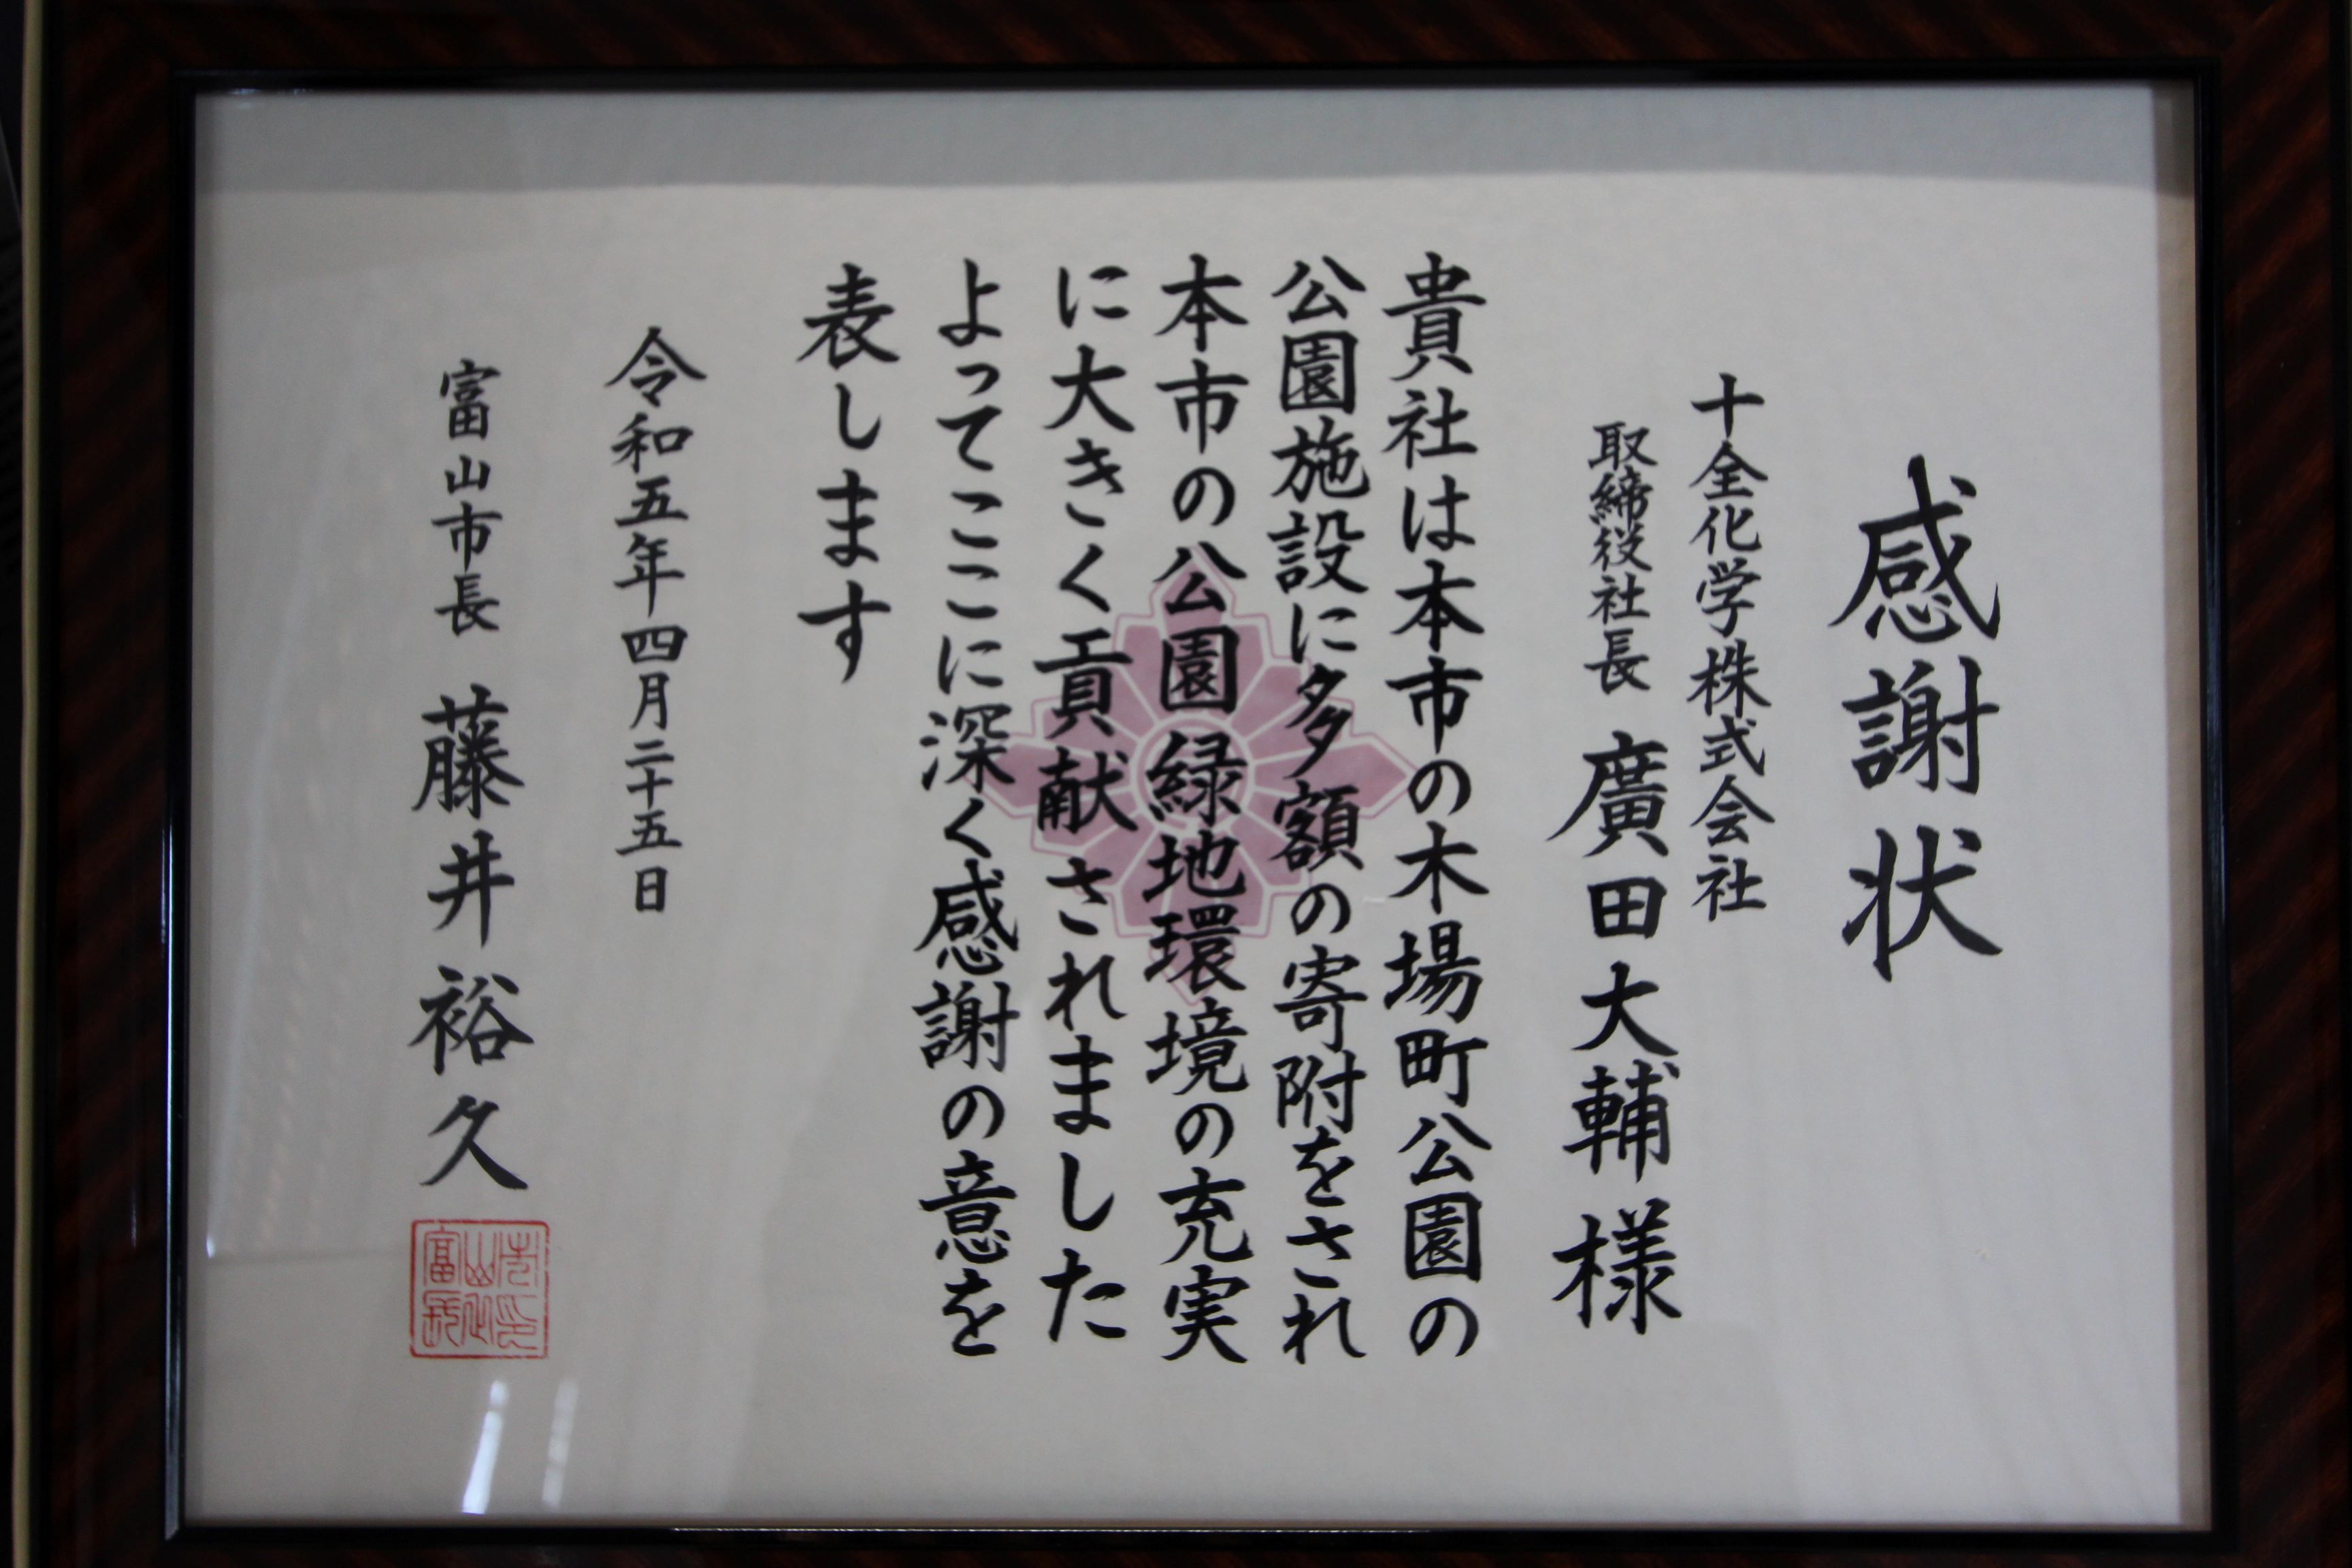 感謝状
十全化学株式会社
取締役社長 廣田大輔様
貴社は本市の木場町公園の
公園施設に多額の寄附をされ
本市の公園緑地環境の充実
に大きく貢献されました
よってここに深く感謝の意を
表します
令和五年四月二十五日
富山市長 藤井裕久